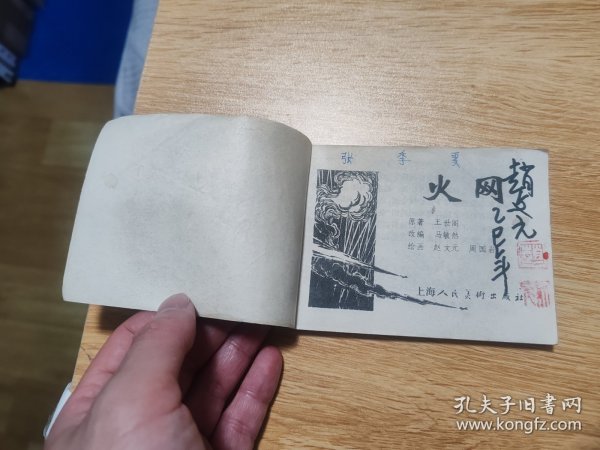 张 李 夏
火网
原著 王世阁
改编 马敏然
绘画 赵文元 周国
上海人民美術出版社
趙文元
乙巳年
孔夫子旧書网
www.kongfz.com